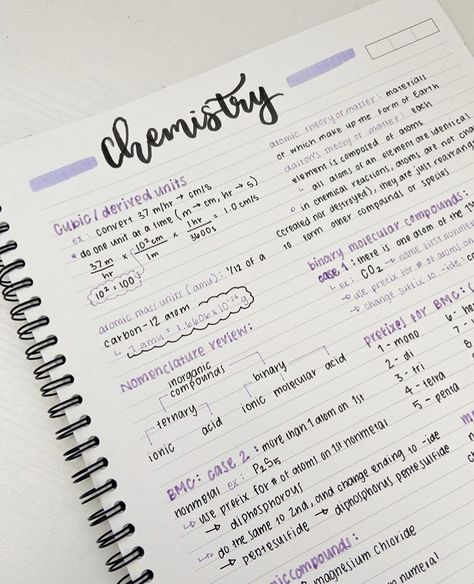 chemistry
cubic / derived units
ex: convert 37 m/hr → cm/s
* do one unit at a time (m → cm, hr → s)
37 m/hr × 10² cm/1m × 1hr/3600s = 1.0 cm/s
10² = 100
atomic mass units (amu): 1/12 of a
carbon-12 atom
1 amu = 1.6606 x 10⁻²⁴ g
Nomenclature review:
inorganic
compounds
binary
ternary
ionic
molecular
acid
ionic
acid
BMC: case 2: more than 1 atom on 1st
nonmetal ex: P₂S₅
use prefix for # of atoms on 1st nonmetal
→ diphosphorous
do the same to 2nd, and change ending to -ide
→ pentesulfide → diphosphorus pentesulfide
atomic theory of matter: materials
of which make up the form of Earth
dalton's theory of matter: each
element is composed of atoms
all atoms of an element are identical
in chemical reactions, atoms are not
(created nor destroyed), they are just
to form other compounds or species
binary molecular compounds:
case 1: there is one atom of the
ex: CO₂ → name first
use prefix for # of atoms
change suffix to -ide:
prefixes for BMC:
1 - mono
2 - di
3 - tri
4 - tetra
5 - penta
6 -
7 -
8
9
compounds:
magnesium chloride